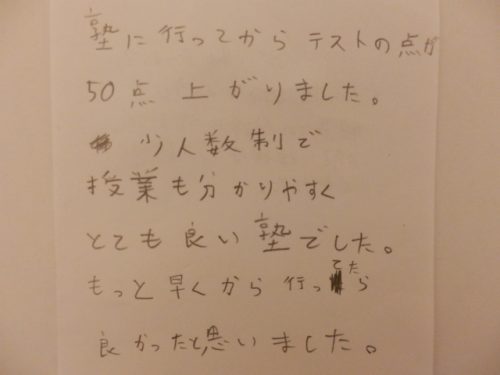 塾に行ってから テストの点が
50点 上がりました。
少人数制で
授業も分かりやすく
とても良い塾でした。
もっと早くから行ってたら
良かったと思いました。